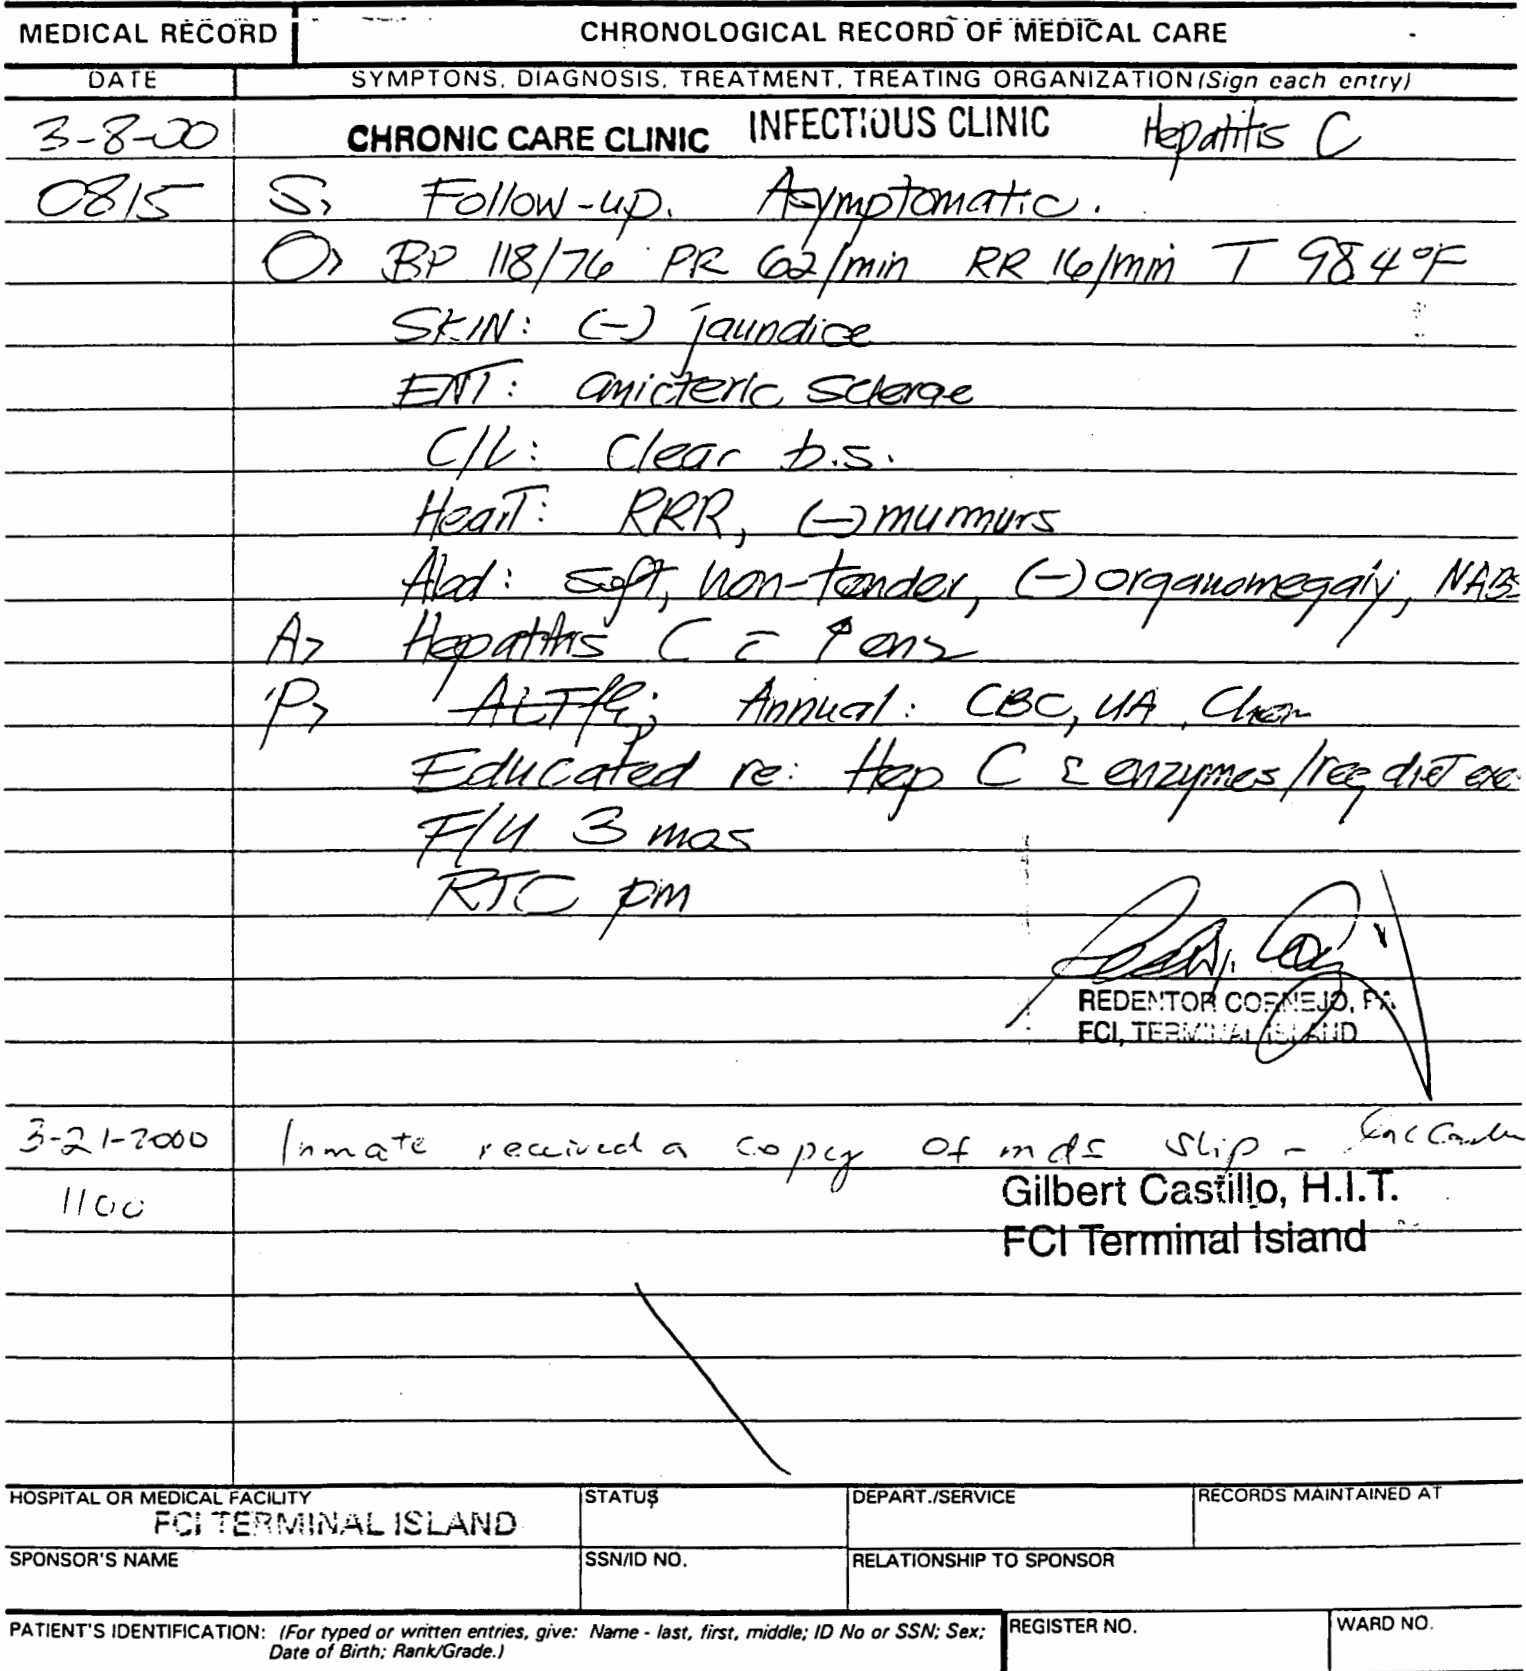 MEDICAL RECORD CHRONOLOGICAL RECORD OF MEDICAL CARE
DATE SYMPTONS, DIAGNOSIS, TREATMENT, TREATING ORGANIZATION (Sign each entry)
3-8-00 CHRONIC CARE CLINIC INFECTIOUS CLINIC Hepatitis C
0815 S> Follow-up. Asymptomatic.
O> BP 118/76 PR 62/min RR 16/min T 98.4°F
SKIN: (-) jaundice
ENT: anicteric sclerae
C/L: Clear b.s.
Heart: RRR, (-) murmurs
Abd: soft, non-tender, (-) organomegaly, NABS
A> Hepatitis C c̄ ↑ enz
P> Annual: CBC, UA, Chem
Educated re: Hep C & enzymes/reg diet exe
F/U 3 mos
RTC prn
REDENTOR CORNEJO, PA
FCI, TERMINAL ISLAND
3-21-2000 Inmate received a copy of mds slip -
1100 Gilbert Castillo, H.I.T.
FCI Terminal Island
HOSPITAL OR MEDICAL FACILITY STATUS DEPART./SERVICE RECORDS MAINTAINED AT
FCI TERMINAL ISLAND
SPONSOR'S NAME SSN/ID NO. RELATIONSHIP TO SPONSOR
PATIENT'S IDENTIFICATION: (For typed or written entries, give: Name - last, first, middle; ID No or SSN; Sex; REGISTER NO. WARD NO.
Date of Birth; Rank/Grade.)